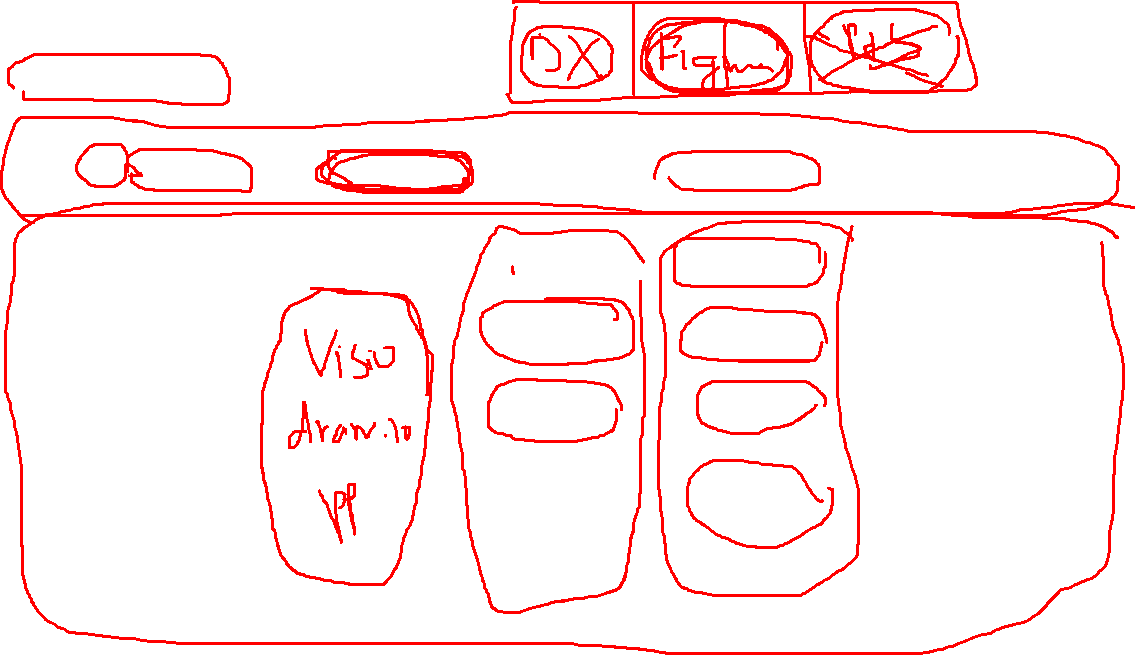 DX
Figma
Visio
draw.io
PP